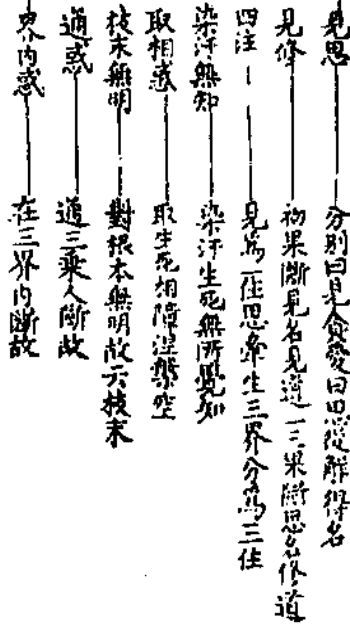 見思 分別曰見貪愛曰思從解得名
見修 初果斷見名見道二三果斷思名修道
四住 見為一住思牽生三界分為三住
染汙無知 染汙生死無所覺知
取相惑 取生死相障涅槃空
枝末無明 對根本無明故云枝末
通惑 通三乘人斷故
界內惑 在三界內斷故